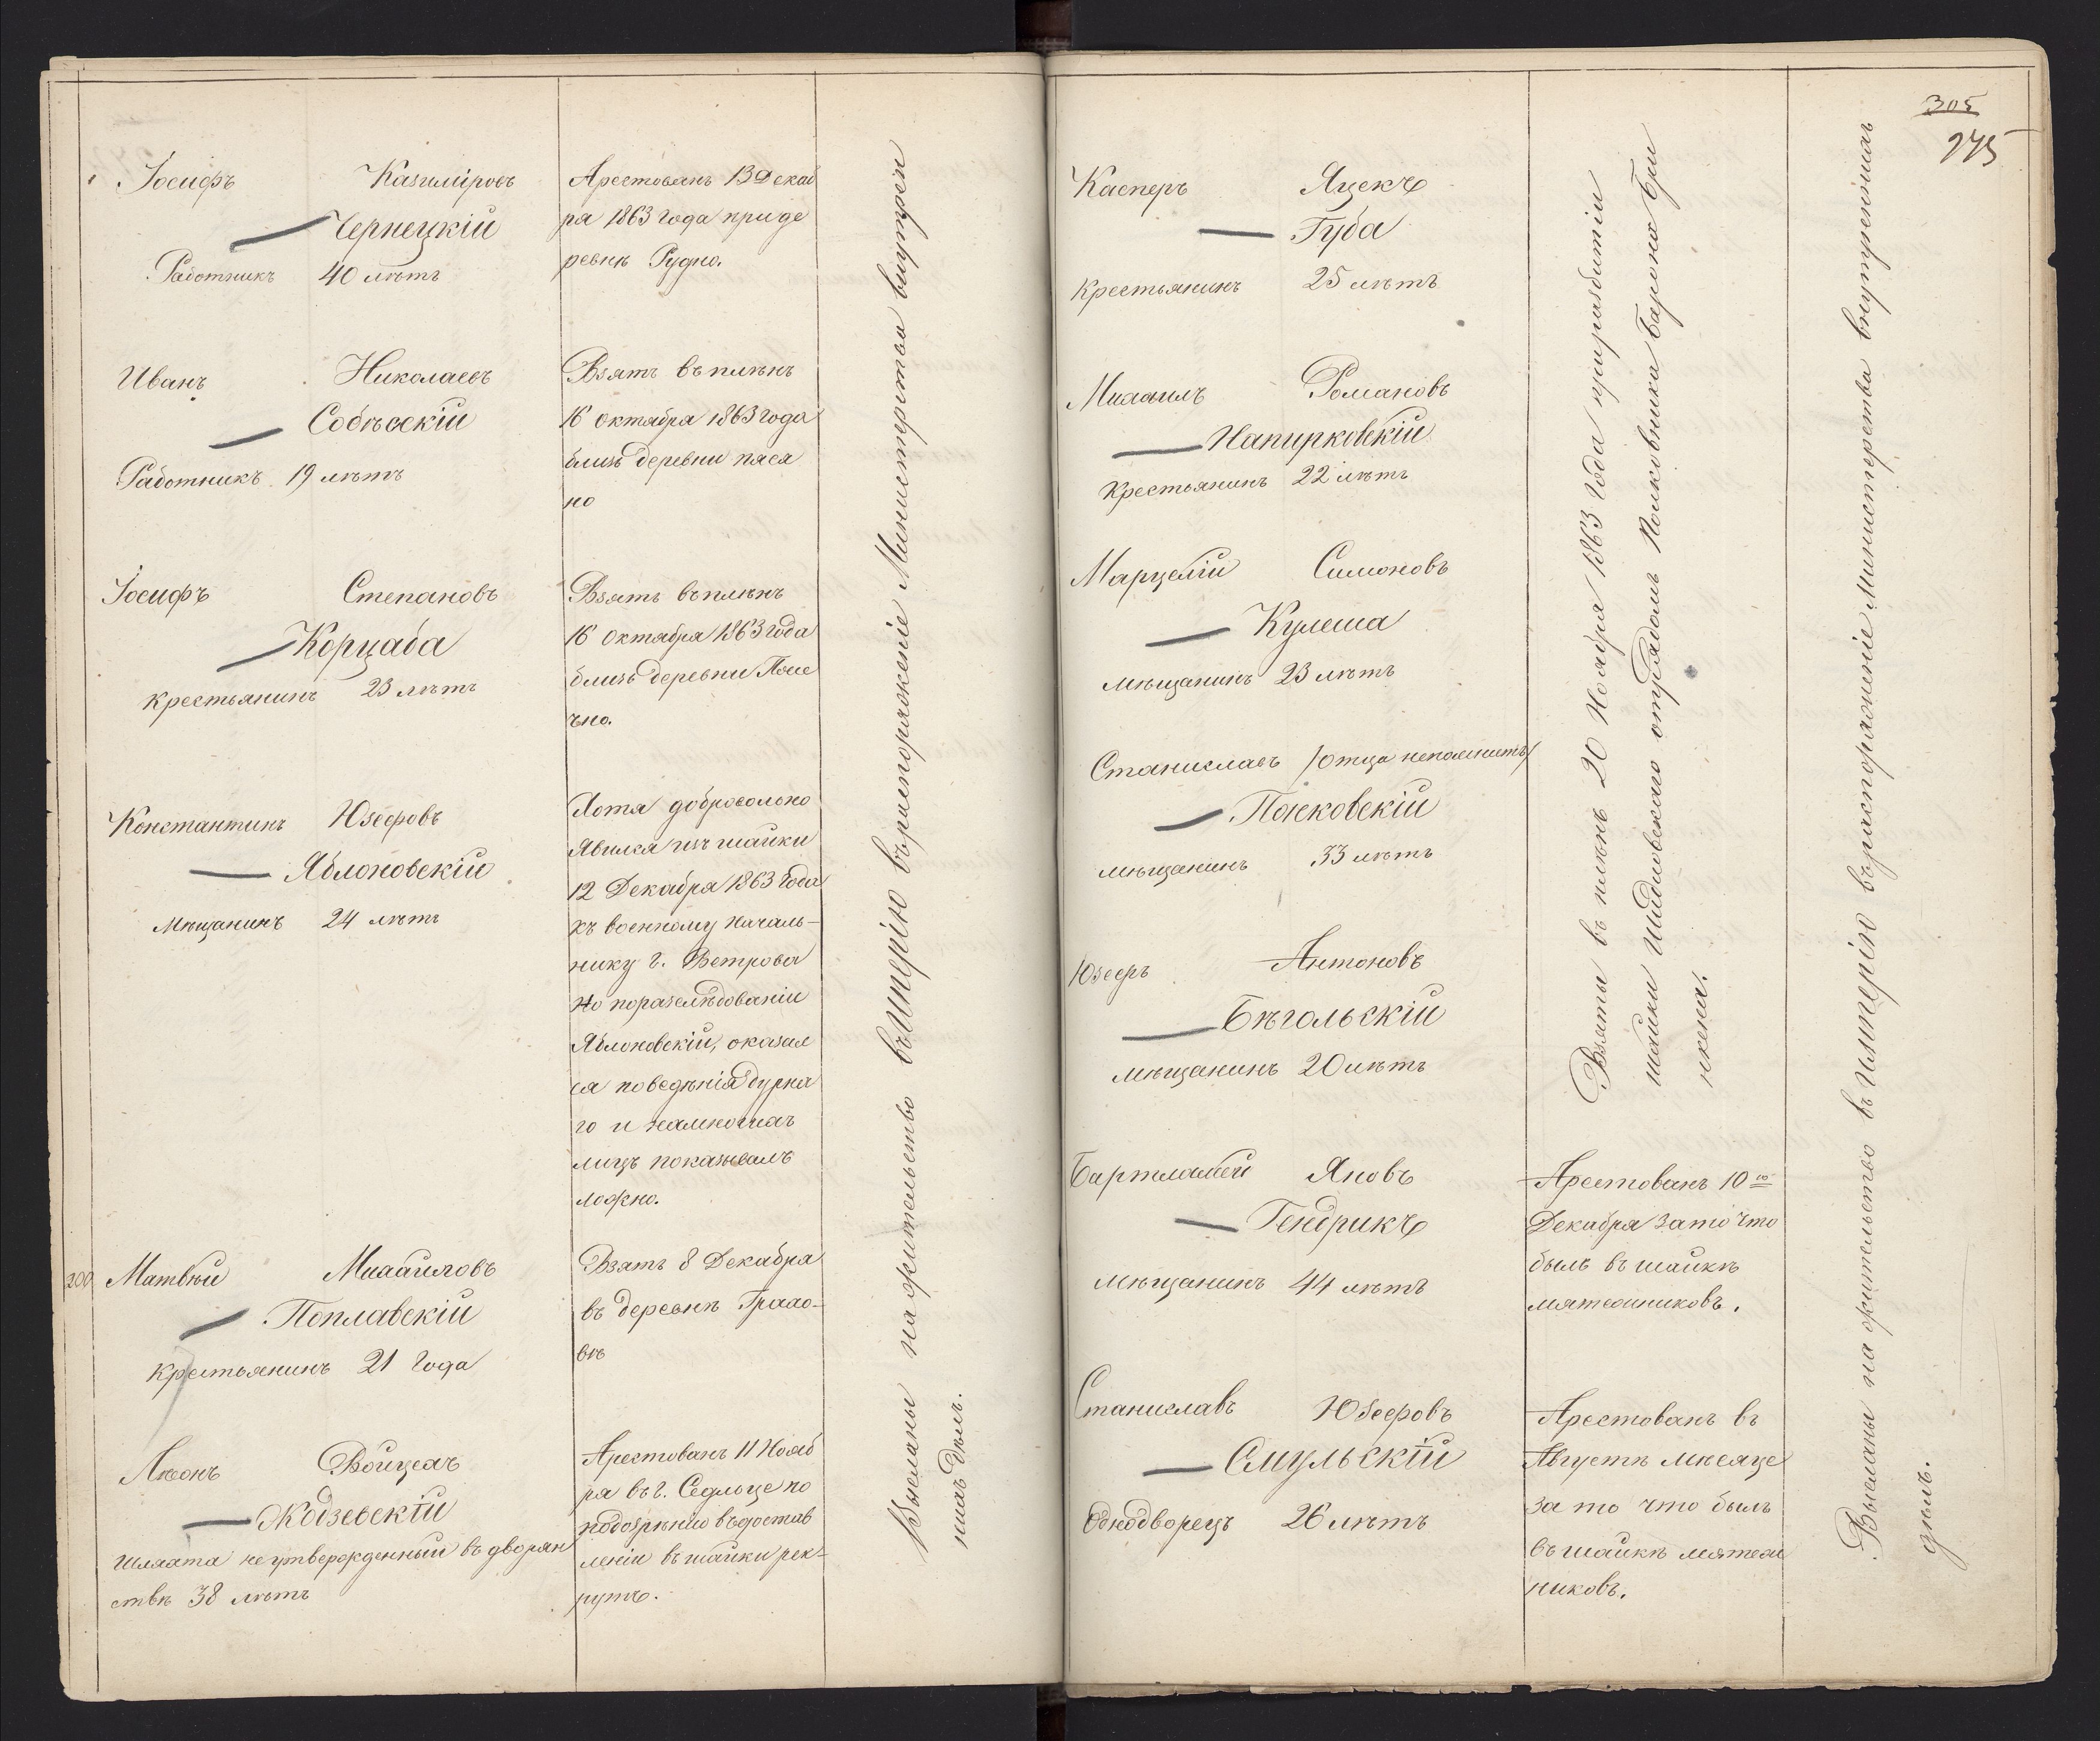 Іосифъ Казиміровъ
Чернецкій
Работникъ 40 лѣтъ
Арестованъ 13 Декаб
ря 1863 года при де
ревнѣ Рудно.
Иванъ Николаевъ
Собѣсскій
Работникъ 19 лѣтъ
Взятъ въ плѣнъ
16 Октября 1863 года
близъ деревни пяся
но
Іосифъ Степановъ
Корцаба
крестьянинъ 23 лѣтъ
Взятъ въ плѣнъ
16 Октября 1863 года
близъ деревни
чно.
Константинъ Юзефовъ
Яблоновскій
Мѣщанинъ 24 лѣтъ
Хотя добровольно
Явился изъ шайки
12 Декабря 1863 года
къ военному Началь-
нику г. Венгрова
но по разслѣдованіи
Яблоновскій, оказал
ся поведѣнія дурна
го и на многихъ
лицъ показывалъ
ложно.
200
Матвѣй Михайловъ
Поплавскій
крестьянинъ 21 года
Взятъ 8 Декабря
въ деревнѣ Грохо-
вѣ
Леонъ Войцехъ
Жодзевскій
Шляхта не утвержденный въ дворян
ствѣ 38 лѣтъ
Арестованъ 11 Нояб
ря въ г. Седльце по
подозрѣнію въ достав
леніи въ шайки рек-
рутъ.
Высланы на жительство въ Имперію въ распоряженіе Министерства внутрен
нихъ Дѣлъ.
305
275
Касперъ Яцекъ
Губа
крестьянинъ 25 лѣтъ
Михаилъ Романовъ
Напирковскій
Крестьянинъ 22 лѣтъ
Марцелій Симоновъ
Кулеша
мѣщанинъ 23 лѣтъ
Станиславъ /отца непомнитъ/
Понковскій
мѣщанинъ 33 лѣтъ
Юзефъ Антоновъ
Бѣгольскій
мѣщанинъ 20 лѣтъ
Взяты въ плѣнъ 20 Ноября 1863 года при разбитіи
шайки Шидловскаго отрядомъ Полковника Барона Бри
нкена.
Бартламей Яновъ
Гендрикъ
Мѣщанинъ 44 лѣтъ
Арестованъ 10го
Декабря за то что
былъ въ шайкѣ
мятежниковъ.
Станиславъ Юзефовъ
Смульскій
Однодворецъ 26 лѣтъ
Арестованъ въ
Августѣ мѣсяце
за то что былъ
въ шайкѣ мятеж
никовъ.
Высланы на жительство въ Имперію въ распоряженіе Министерства внутреннихъ
дѣлъ.